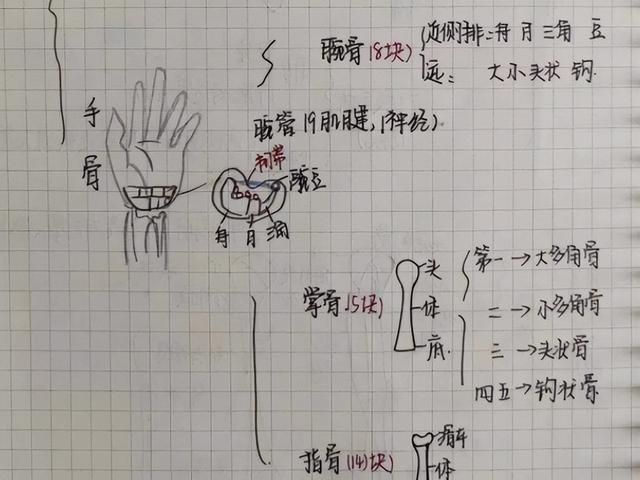 腕骨(8块)
近侧排:舟 月 三角 豆
远: 大小头状 钩
手骨
腕管(9肌腱,1神经)
韧带
豆
舟 月 三角
掌骨(5块)
头
体
底
第一→大多角骨
二→小多角骨
三→头状骨
四五→钩状骨
指骨(14块)
滑车
体